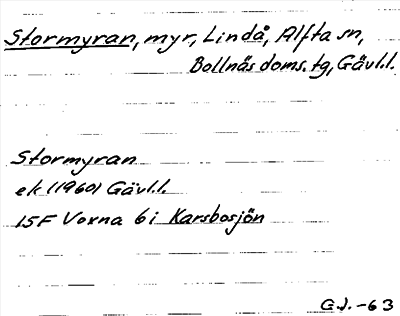 Stormyran, myr, Lindå, Alfta sn,
Bollnäs doms.tg, Gävl.l.
Stormyran
ek (1960) Gävl.l.
15F Voxna 6i Karsbosjön
G.J. -63